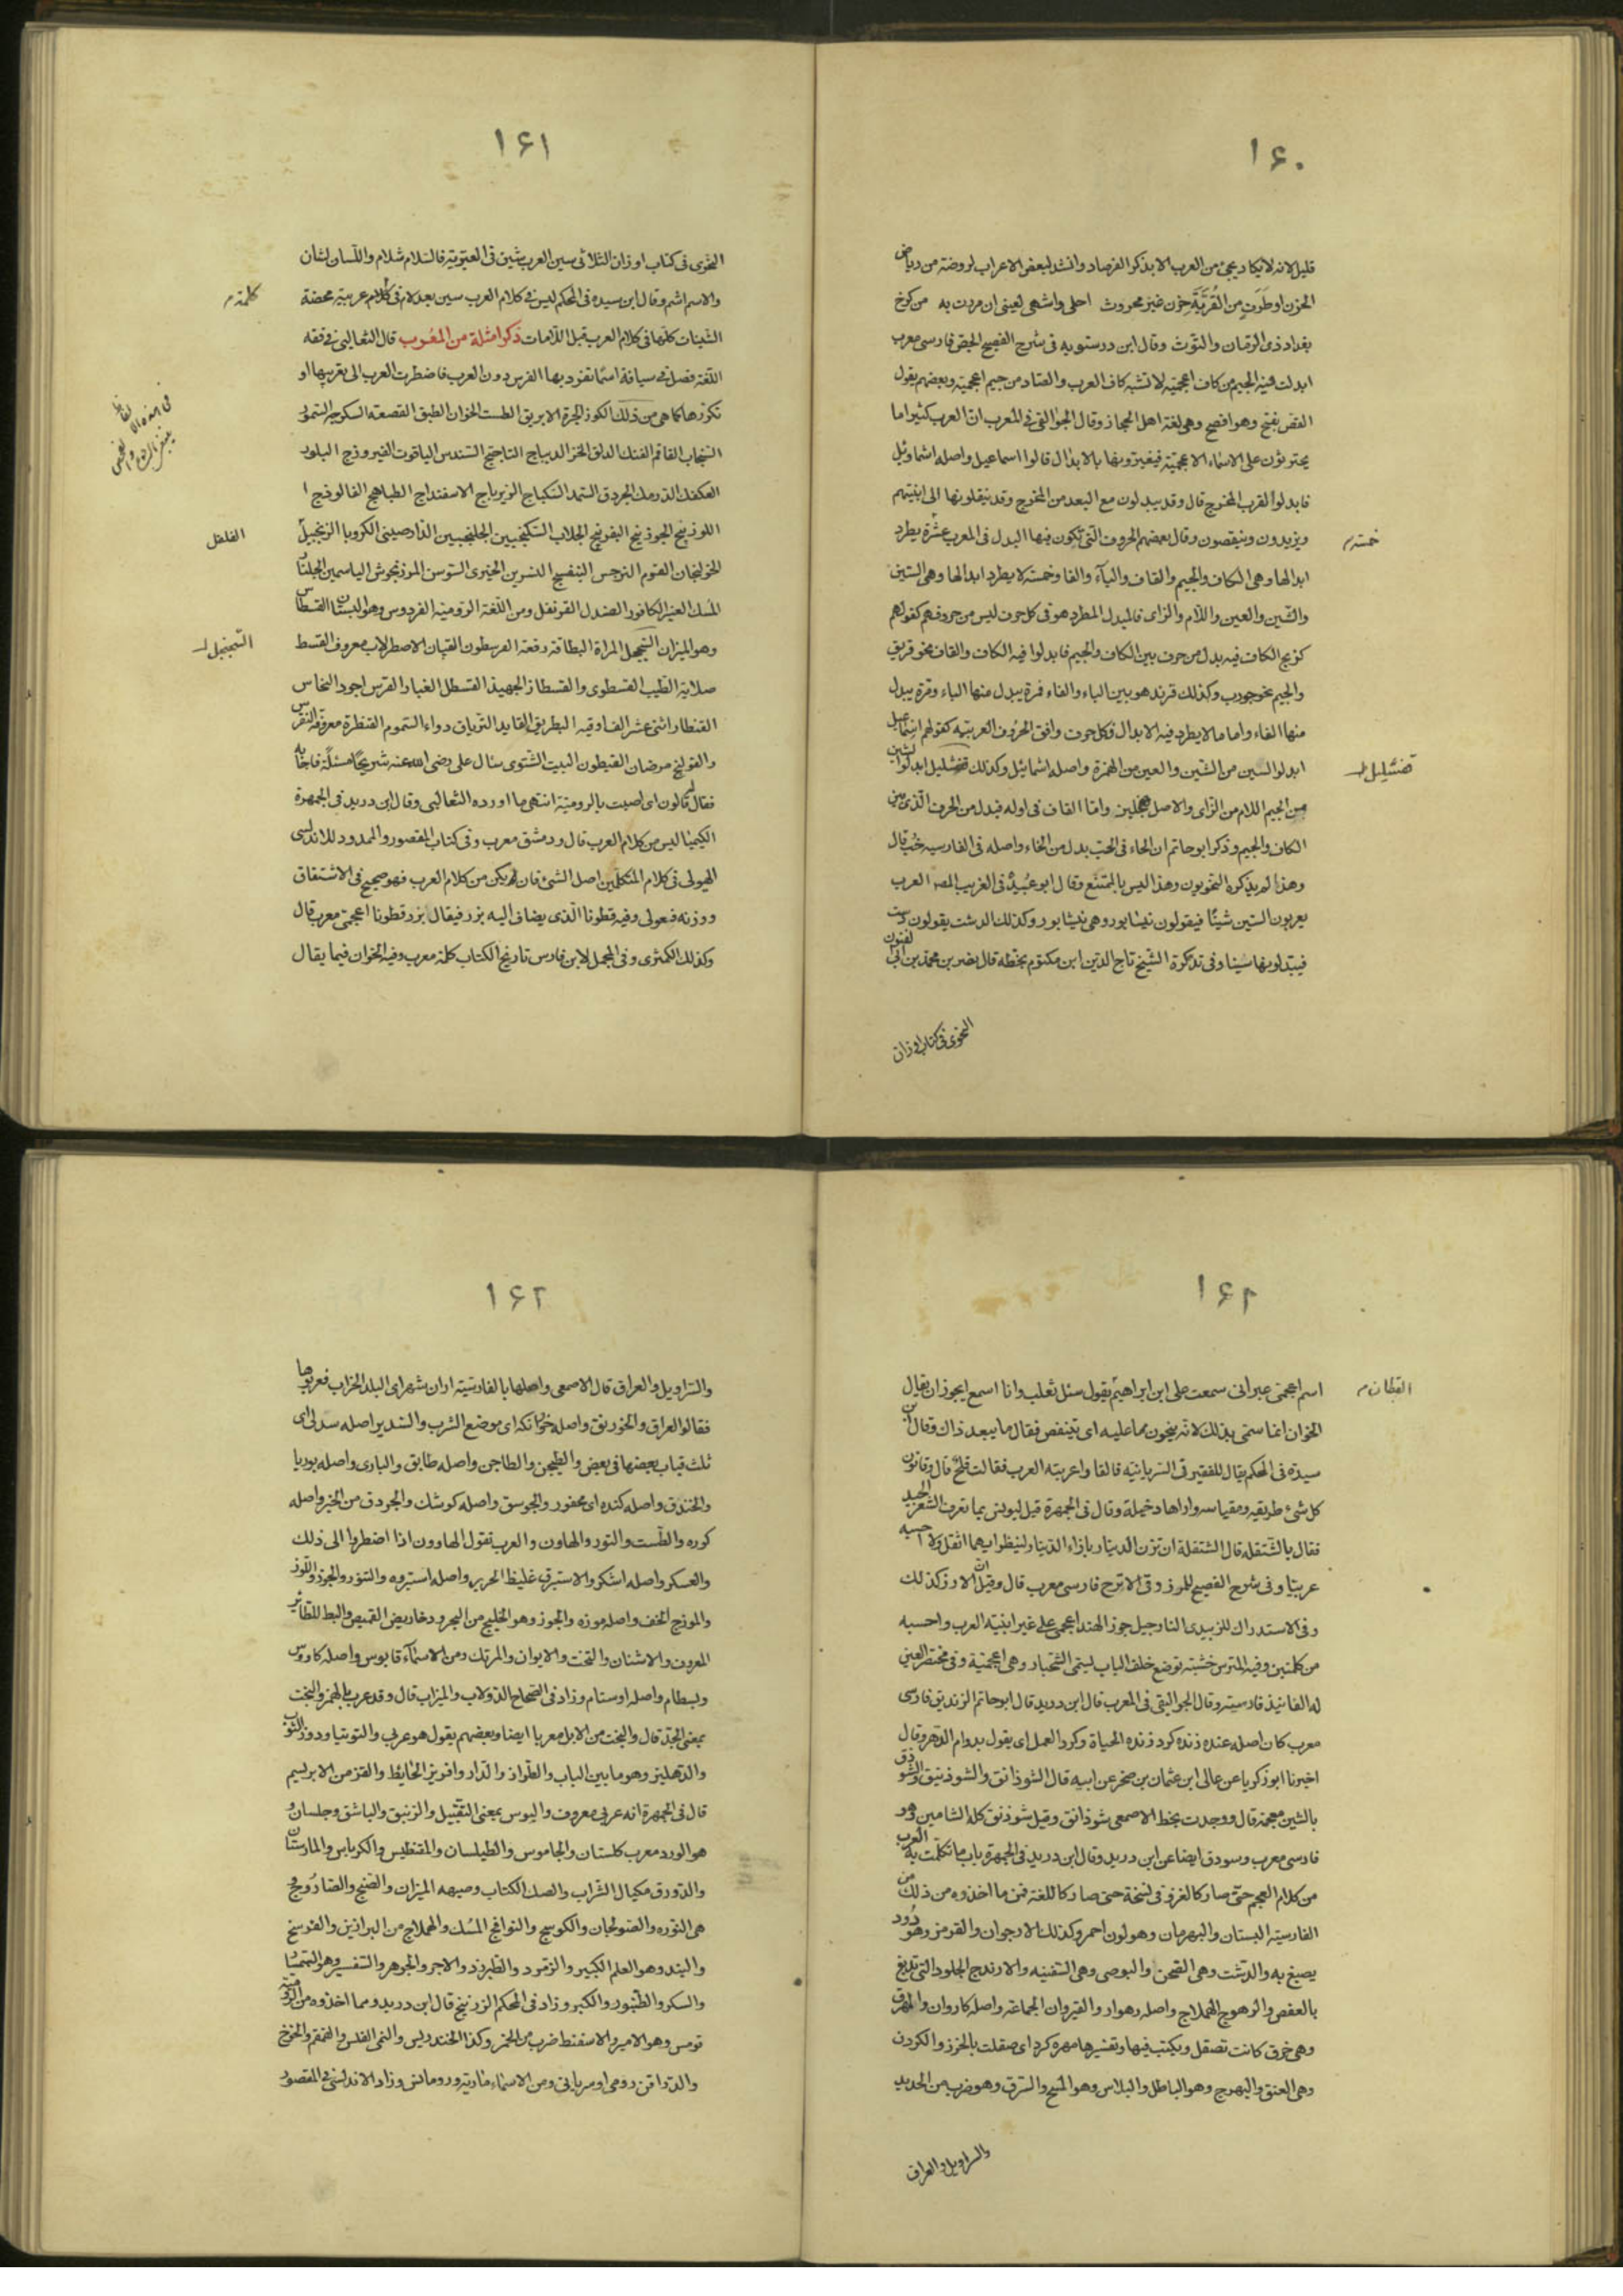 ١٦٠
قليل لانه لا يكاد يجئ من العرب الا بذكر الفرصاد وانشد لبعض الاعراب لروضة من رياض
الحزن او طرف من القرية حزن غير محروث احلى واشهى لعيني ان مررت به من كرخ
بغداد ذى الرمان والتوث وقال ابن درستويه فى شرح الفصيح الجص فارسى معرب
ابدلت فيه الجيم من كاف اعجمية لا تشبه كاف العرب والصاد من جيم اعجمية وبعضهم يقول
القص بفتح وهو افصح وهى لغة اهل الحجاز وقال الجواليقى فى المعرب ان العرب كثيرا ما
يجترئون على الاسماء الاعجمية فيغيرونها بالابدال قالوا اسماعيل واصله اشماويل
فابدلوا لقرب المخرج قال وقد يبدلون مع البعد من المخرج وقد ينقلونها الى ابنيتهم
ويزيدون وينقصون وقال بعضهم الحروف التى تكون فيها البدل فى المعرب عشرة يطرد
خمسة
ابدالها وهى الكاف والجيم والقاف والبآء والفا وخمسة لا يطرد ابدالها وهى السين
والشين والعين واللام والزاى فالبدل المطرد هو فى كل حرف ليس من حروفهم كقولهم
كزبج الكاف فيه بدل من حرف بين الكاف والجيم فابدلوا فيه الكاف والقاف نحو قربق
والجيم نحو جورب وكذلك فرند هو بين الباء والفاء فمرة يبدل منها الباء ومرة يبدل
منها الفاء واما ما لا يطرد فيه الابدال فكل حرف وافق الحروف العربية كقولهم اسماعيل
ابدلوا السين من الشين والعين من الهمزة واصله اشمائيل وكذلك قفشليل ابدلوا الشين
قفشليل
من الجيم اللام من الزاى والاصل واما القاف فى اوله فبدل من الحرف الذى بين
الكاف والجيم وذكر ابو حاتم ان الحاء فى الحب بدل من الخاء واصله فى الفارسية خب قال
وهذا لم يذكره النحويون وهذا ليس بالممتنع وقال ابو عبيد فى الغريب المصنف العرب
يعربون الشين سينا فيقولون نيسابور وهى نيشابور وكذلك الدشت يقولون دست
فيبدلونها سينا وفى تذكرة الشيخ تاج الدين ابن مكتوم بخطه قال نصر بن محمد بن ابى الفنون
النحوى فى كتاب اوزان
١٦١
النحوى فى كتاب اوزان الثلاثى سين العربية شين فى العبرية فالسلام شلام واللسان لشان
والاسم اشم وقال ابن سيده فى المحكم ليس فى كلام العرب سين بعد لام فى كلام عربية محضة
كلمة
الشينات كلها فى كلام العرب قبل اللامات ذكر امثلة من المعرب قال الثعالبى فى فقه
اللغة فصل فى سياقة اسما تفرد بها الفرس دون العرب فاضطرت العرب الى تعريبها او
تكرها كما هى من ذلك الكوز الجرة الابريق الطست الخوان الطبق القصعة السكرجة السمور
السنجاب القاقم الفنك الدلق الخز الديباج التاختج السندس الياقوت الفيروزج البلور
الكعك الدرمك الجردق السميد السكباج الزيرباج الاسفيداج الطباهج الفالوذج
اللوزينج الجوزينج النفرينج الجلاب السكنجبين الجلنجبين الدارصينى الكرويا الزنجبيل
الفلفل
الخولنجان القوم النرجس البنفسج النسرين الخيرى السوسن المرزنجوش الياسمين الجلنار
المسك العنبر الكافور الصندل القرنفل ومن اللغة الرومية الفردوس وهو البستان القسطاس
وهو الميزان السجنجل المراة البطاقة رقعة القرسطون القبان الاصطرلاب معروف القسط
السجنجل
صلاية الطيب القسطرى والقسطار الجهبذ القسطل الغبار القبرس اجود النحاس
القنطار اثنى عشر الف اوقيه البطريق القايد الترياق دواء السموم القنطرة معروفة النقرس
والقولنج مرضان القيطون البيت الشتوى سئال على رضى الله عنه شريحا مسئلة فاجابه
فقال قالون اى اصبت بالرومية انتهى ما اورده الثعالبى وقال ابن دريد فى الجمهرة
الكيميا ليس من كلام العرب قال ودمشق معرب وفى كتاب المقصور والممدود للاندلسى
الهيولى فى كلام المتكلمين اصل الشئ فان لم يكن من كلام العرب فهو صحيح فى الاشتقاق
ووزنه فيعولى وفيه قطونا الذى يضاف اليه بزر فيقال بزر قطونا اعجمى معرب قال
وكذلك الكمثرى وفى المجمل لابن فارس تاريخ الكتاب كلمة معرب وفيه الخوان فيما يقال
١٦٢
اسم اعجمى غير انى سمعت على ابن ابراهيم يقول سئل ثعلب وانا اسمع ايجوز ان يقال
القطان
الخوان انما سمى بذلك لانه يتخون ما عليه اى ينتقص فقال ما يبعد ذاك وقال ابن
سيده فى المحكم يقال للفقير فى السريانية فالقا واعربته العرب فقالت فلج قال وقانون
كل شئ طريقه ومقياسه واراها دخيلة وقال فى الجمهرة قيل ليونس بما تعرف الشعر الجيد
فقال بالشقلة قال الشقلة ان تزن الدينار بازاء الدينار لينظر ايهما اثقل ولا احسبه
عربيا وفى شرح الفصيح للمرزوقى الاترج فارسى معرب قال وقيل ان الارز كذلك
وفى الاستدراك للزبيدى النارجيل جوز الهند اعجمى على غير ابنية العرب واحسبه
من كلمتين وفيه المترس خشبة توضع خلف الباب ليتمى الشجار وهى اعجمية وفى مختصر العين
له الفانيذ فارسية وقال الجواليقى فى المعرب قال ابن دريد قال ابو حاتم الزنديق فارسى
معرب كان اصله عنده زنده كرد زنده الحياة وكرد العمل اى يقول بدوام الدهر وقال
اخبرنا ابو زكريا عن عالى ابن عثمان بن صخر عن ابيه قال الشوذانق والشوذنيق والشوذق
بالشين معجمة قال ووجدت بخط الاصمعى شوذانق وقيل شوذنوق كله الشاهين وهو
فارسى معرب وسودق ايضا عن ابن دريد وقال ابن دريد فى الجمهرة باب ما تكلمت به العرب
من كلام العجم حتى صار كالغزو فى نسخة حتى صار كاللغة فمن ما اخذوه من ذلك من
الفارسية البستان والبهرمان وهو لون احمر وكذلك الارجوان والقرمز وهو دود
يصبغ به والدشت وهى الصحرا والبوصى وهى السفينه والارندج الجلود التى تدبغ
بالعفص والرهوج الهملاج واصله رهوار والقيروان الجماعة واصله كاروان والمهرق
وهى خرق كانت تصقل ويكتب فيها وتفسيرها مهره كرد اى صقلت بالخرز والكردن
وهى العنق والبهرج وهو الباطل والبلاس وهو المسح والسرق وهو ضرب من الحرير
والسراويل والعراق
١٦٢
والسراويل والعراق قال الاصمعى واصلها بالفارسية اران شهر اى البلد الخراب فعربوها
فقالوا العراق والخورنق واصله خرانكه اى موضع الشرب والسدير اصله سدلى اى
ثلث قباب بعضها فى بعض والطيجن والطاجن واصله طابق والبارى واصله بوريا
والخندق واصله كنده اى محفور والجوسق واصله كوشك والجردق من الخبز واصله
كرده والطست والتور والهاون والعرب تقول الهاوون اذا اضطروا الى ذلك
والعسكر واصله اشكر والاستبرق غليظ الحرير واصله استروه والتنور والجوز واللوز
والموزج الخف واصله موزه والخور وهو الخليج من البحر ودخاريص القميص والبط للطائر
المعروف والاشنان والتخت والايوان والمرتك ومن الاسماء قابوس واصله كاووس
وبسطام واصله اوستام وزاد فى الصحاح الدولاب والميزاب قال وقد عرب بالهمز والبخت
بمعنى الجد قال والبخت من الابل معربا ايضا وبعضهم يقول هو عربى والتوتيا ودروز الثوب
والدهليز وهو ما بين الباب والدار والطراز وافريز الحائط والقز من الابريسم
قال فى الجمهرة انه عربى معروف والبوس بمعنى التقبيل والزئبق والباشق وجلسان و
هو الورد معرب كلستان والجاموس والطيلسان والمقنطيس والكرباس والمارستان
والدورق مكيال الشراب والصك الكتاب وصنجه الميزان والصنج والصاروج و
هى النوره والصولجان والكوسج والنوافج المسك والهملاج من البراذين والفرسخ
والبند وهو العلم الكبير والزمرد والطبرزد والاجر والجوهر والسفسير وهو السمسار
والسكر والطنبور والكبر وزاد فى المحكم الزرنيخ قال ابن دريد ومما اخذوه من الرومية
قومس وهو الامير والاسفنط ضرب من الخمر وكذا الخندريس والنمى الفلس والقمقم والخوخ
والدراقن رومى او سريانى ومن الاسماء مارية ورومانس وزاد الاندلسى فى المقصور